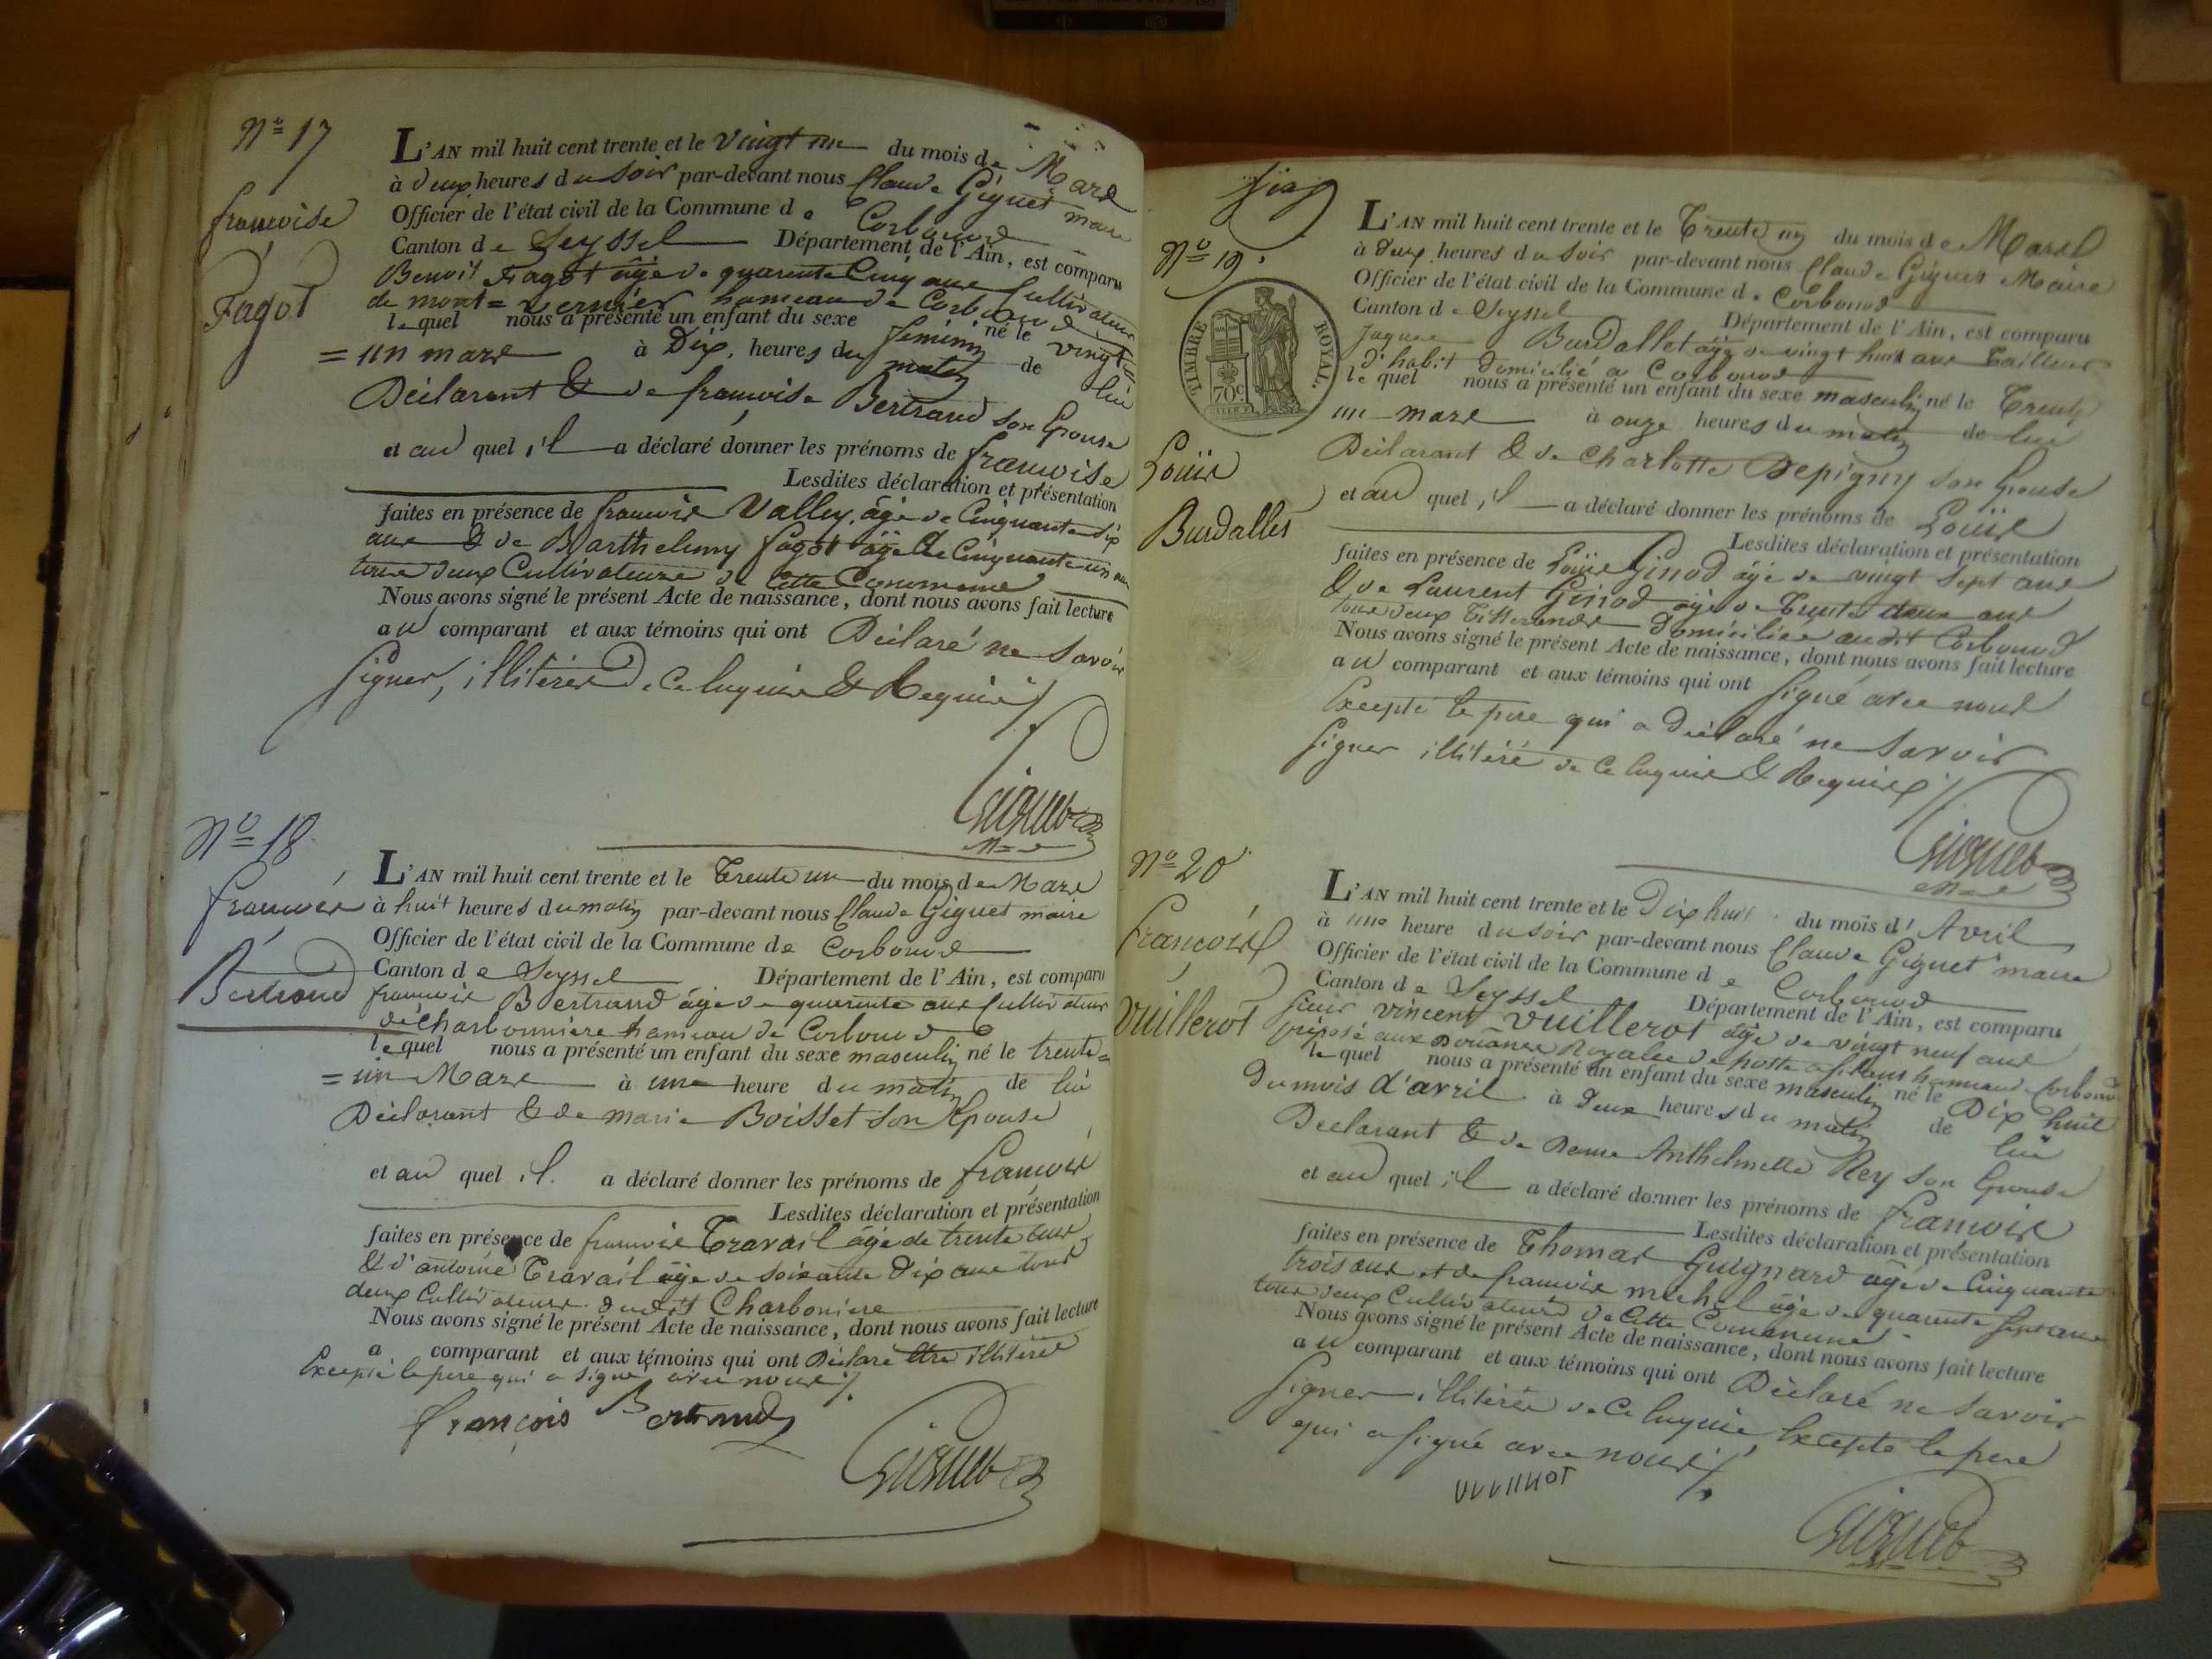 Nº 17
françoise
Fagot
L'AN mil huit cent trente et le vingt un du mois de Mars
à deux heures du soir par-devant nous Claude Giguet maire
Officier de l'état civil de la Commune de Corbonod
Canton de Seyssel Département de l'Ain, est comparu
Benoit Fagot âgé de quarente Cinq ans Cultivateur
de mont= vernier hameau de Corbonod
lequel nous a présenté un enfant du sexe feminin né le vingt
= un mars à Dix heures du matin de lui
Déclarant & de françoise Bertrand son Epouse
et au quel il a déclaré donner les prénoms de françoise
Lesdites déclaration et présentation
faites en présence de françois Valley, âgé de Cinquante six
ans & de Barthelemy fagot âgé de Cinquante un ans
tous deux Cultivateurs de Cette Commune
Nous avons signé le présent Acte de naissance, dont nous avons fait lecture
au comparant et aux témoins qui ont Déclaré ne Savoir
Signer, illiterés De Ce Enquis & Requis
Giguet
Nº 18
françois
Bertrand
L'AN mil huit cent trente et le Trente un du mois de Mars
à huit heures du matin par-devant nous Claude Giguet maire
Officier de l'état civil de la Commune de Corbonod
Canton de Seyssel Département de l'Ain, est comparu
françois Bertrand âgé de quarente ans Cultivateur
de Charbonniere hameau de Corbonod
lequel nous a présenté un enfant du sexe masculin né le trente
= un Mars à une heure du matin de lui
Déclarant & de marie Boisset son Epouse
et au quel il a déclaré donner les prénoms de françois
Lesdites déclaration et présentation
faites en présence de françois Travail âgé de trente ans
& d'antoine Travail âgé de soixante Dix ans tous
deux Cultivateurs dudit Charboniere
Nous avons signé le présent Acte de naissance, dont nous avons fait lecture
a comparant et aux témoins qui ont Déclaré être illiterés
Excepté le pere qui a signé avec nous
françois Bertrand
Giguet
Nº 19
TIMBRE ROYAL
70c
Loüis
Burdallet
L'AN mil huit cent trente et le Trente un du mois de Mars
à deux heures du soir par-devant nous Claude Giguet Maire
Officier de l'état civil de la Commune de Corbonod
Canton de Seyssel Département de l'Ain, est comparu
Jaques Burdallet âgé de vingt huit ans Tailleur
d'habit domicilié a Corbonod
lequel nous a présenté un enfant du sexe masculin né le Trente
un mars à onze heures du matin de lui
Déclarant & de Charlotte Depigny son Epouse
et au quel il a déclaré donner les prénoms de Loüis
Lesdites déclaration et présentation
faites en présence de Loüis Ginod âgé de vingt Sept ans
& de Laurent Ginod âgé de Trente deux ans
tous deux Tisserands domiciliés audit Corbonod
Nous avons signé le présent Acte de naissance, dont nous avons fait lecture
au comparant et aux témoins qui ont Signé avec nous
Excepté le pere qui a Déclaré ne Savoir
Signer illitéré de Ce Enquis & Requis
Giguet
Nº 20
François
Vuillerot
L'AN mil huit cent trente et le Dix huit du mois d'Avril
à une heure du soir par-devant nous Claude Giguet maire
Officier de l'état civil de la Commune de Corbonod
Canton de Seyssel Département de l'Ain, est comparu
sieur vincent vuillerot âgé de vingt neuf ans
préposé aux Douanes Royales de hameau de Corbonod
lequel nous a présenté un enfant du sexe masculin né le Dix huit
du mois d'avril à deux heures du matin de lui
Déclarant & de Dame Anthelmette Rey son Epouse
et au quel il a déclaré donner les prénoms de françois
Lesdites déclaration et présentation
faites en présence de Thomas Guignard âgé de Cinquante
trois ans et de françois michel âgé de quarente sept ans
tous deux Cultivateurs de Cette Commune
Nous avons signé le présent Acte de naissance, dont nous avons fait lecture
au comparant et aux témoins qui ont Déclaré ne Savoir
Signer illiterés de Ce Enquis Excepté le pere
qui a signé avec nous
Giguet